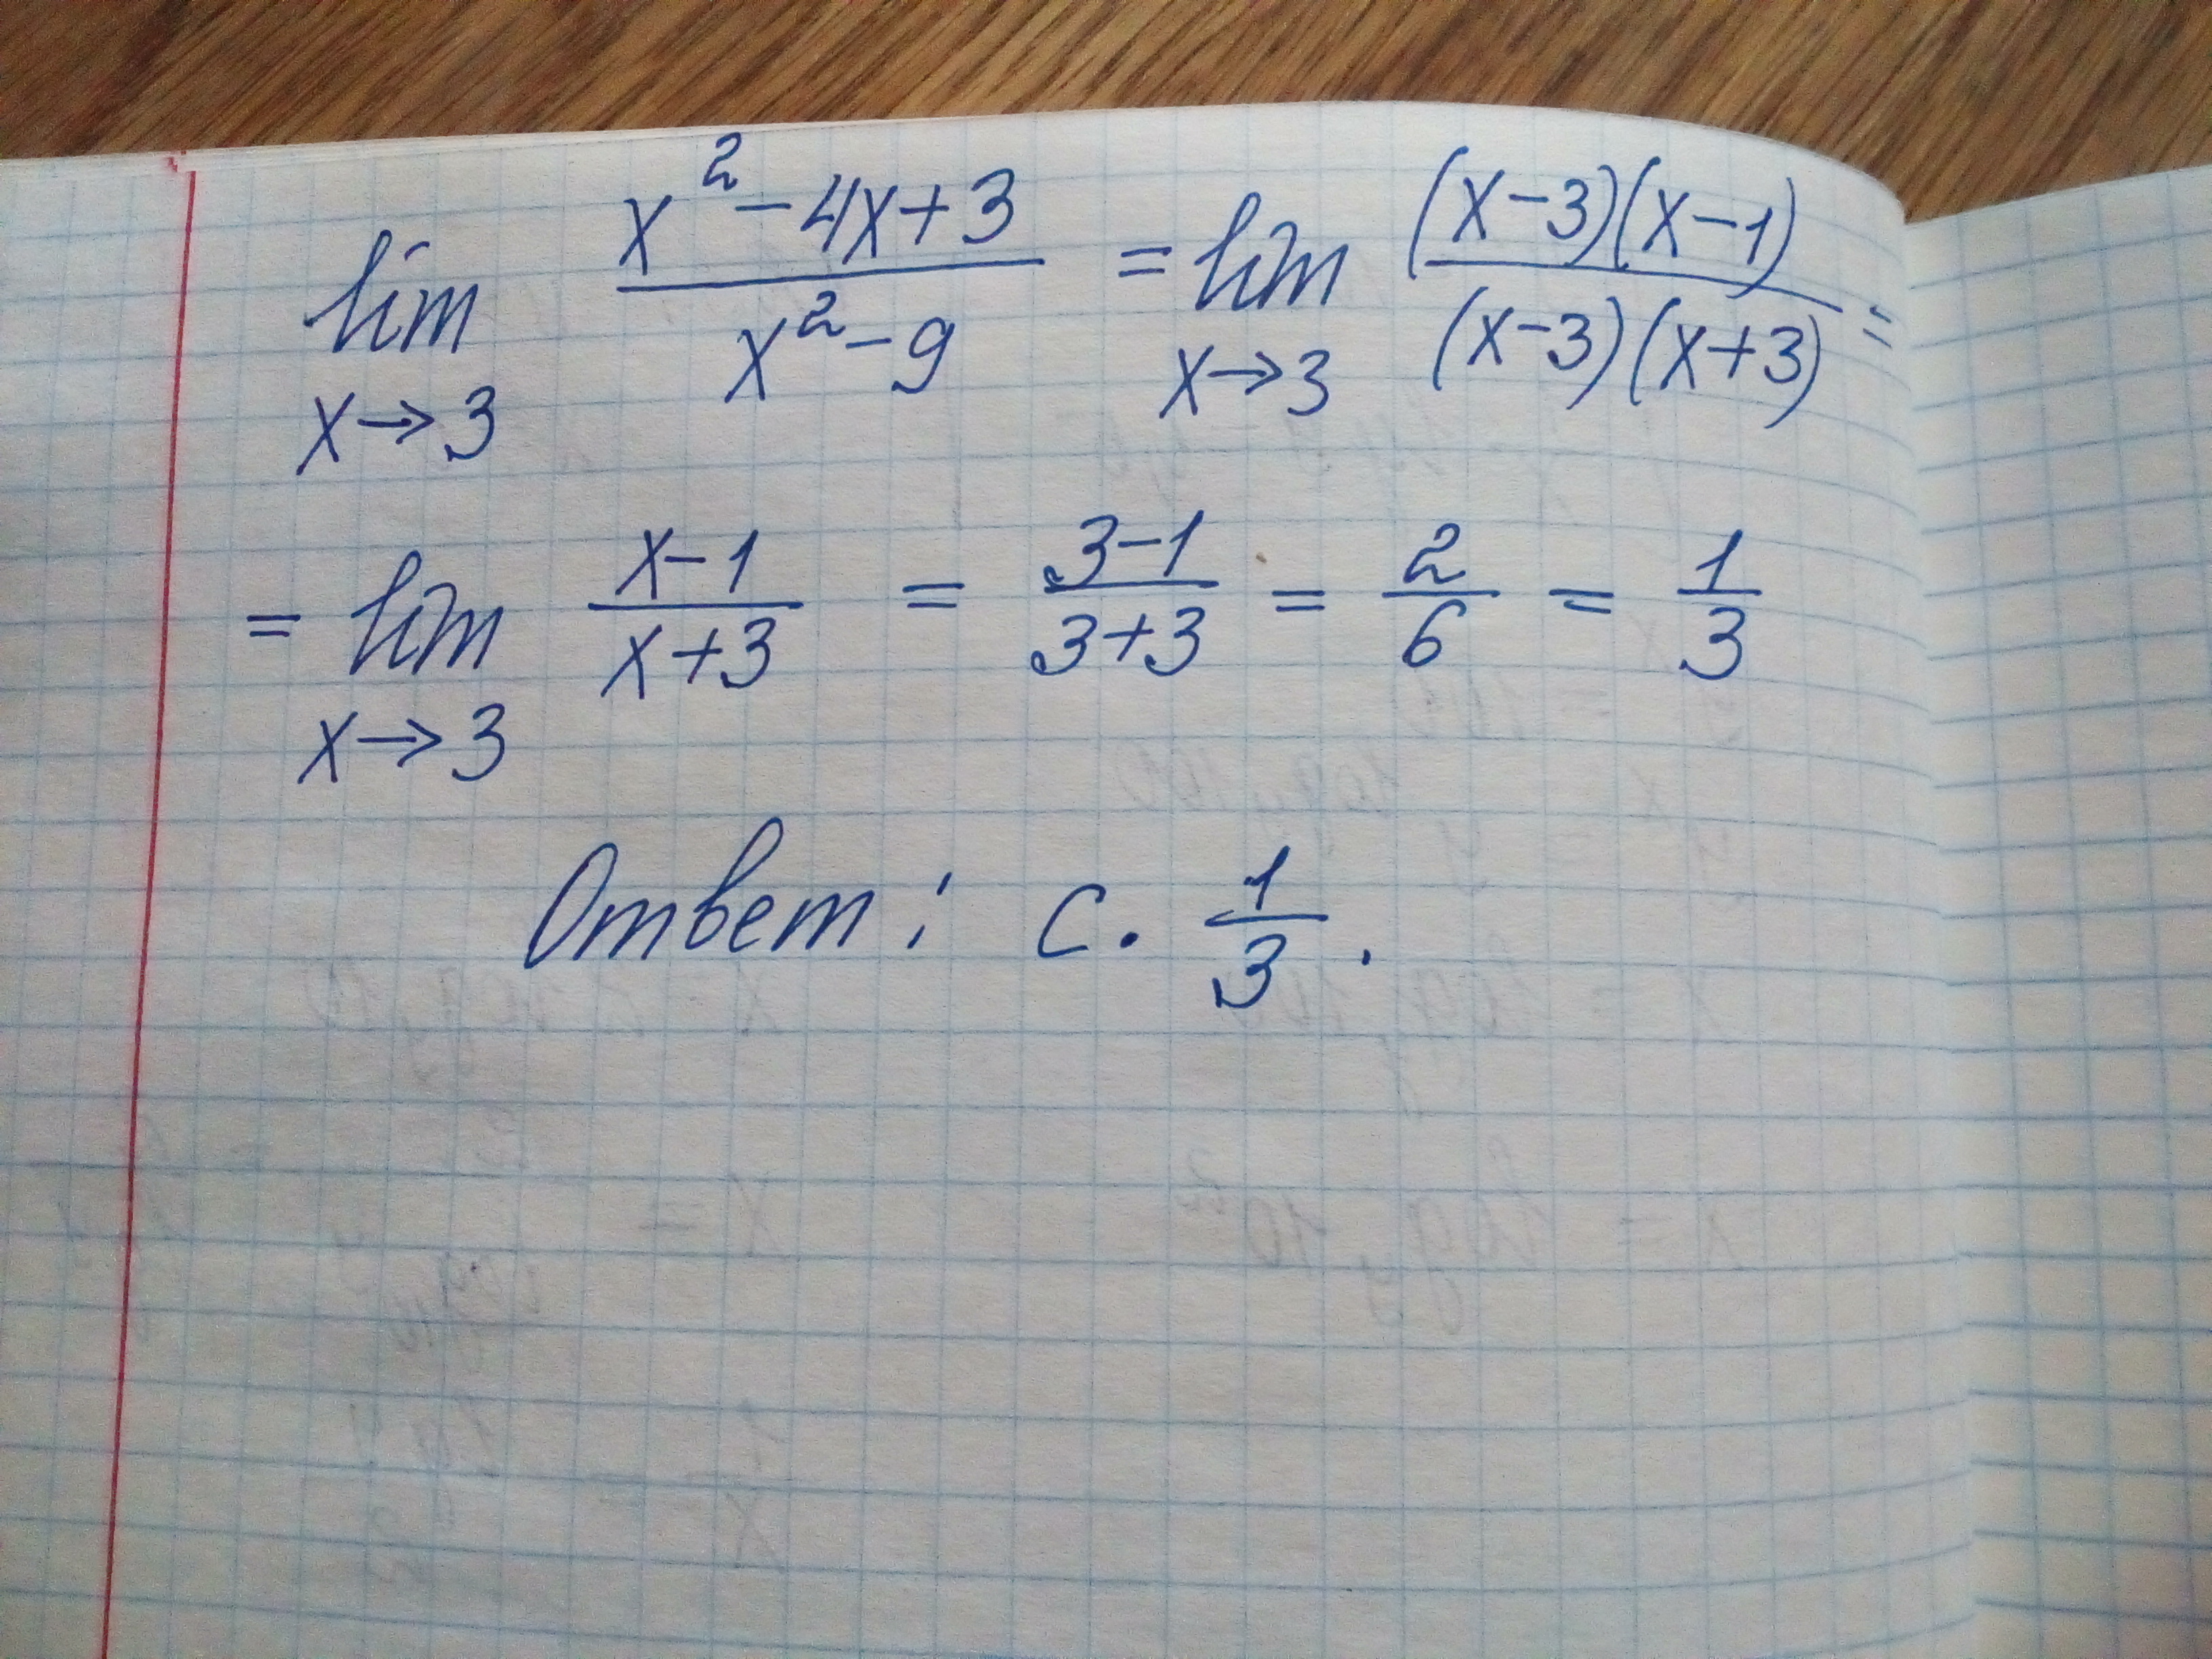 lim x→3 (x² - 4x + 3)/(x² - 9) = lim x→3 ((x-3)(x-1))/((x-3)(x+3)) =
= lim x→3 (x-1)/(x+3) = (3-1)/(3+3) = 2/6 = 1/3
Ответ: с. 1/3.